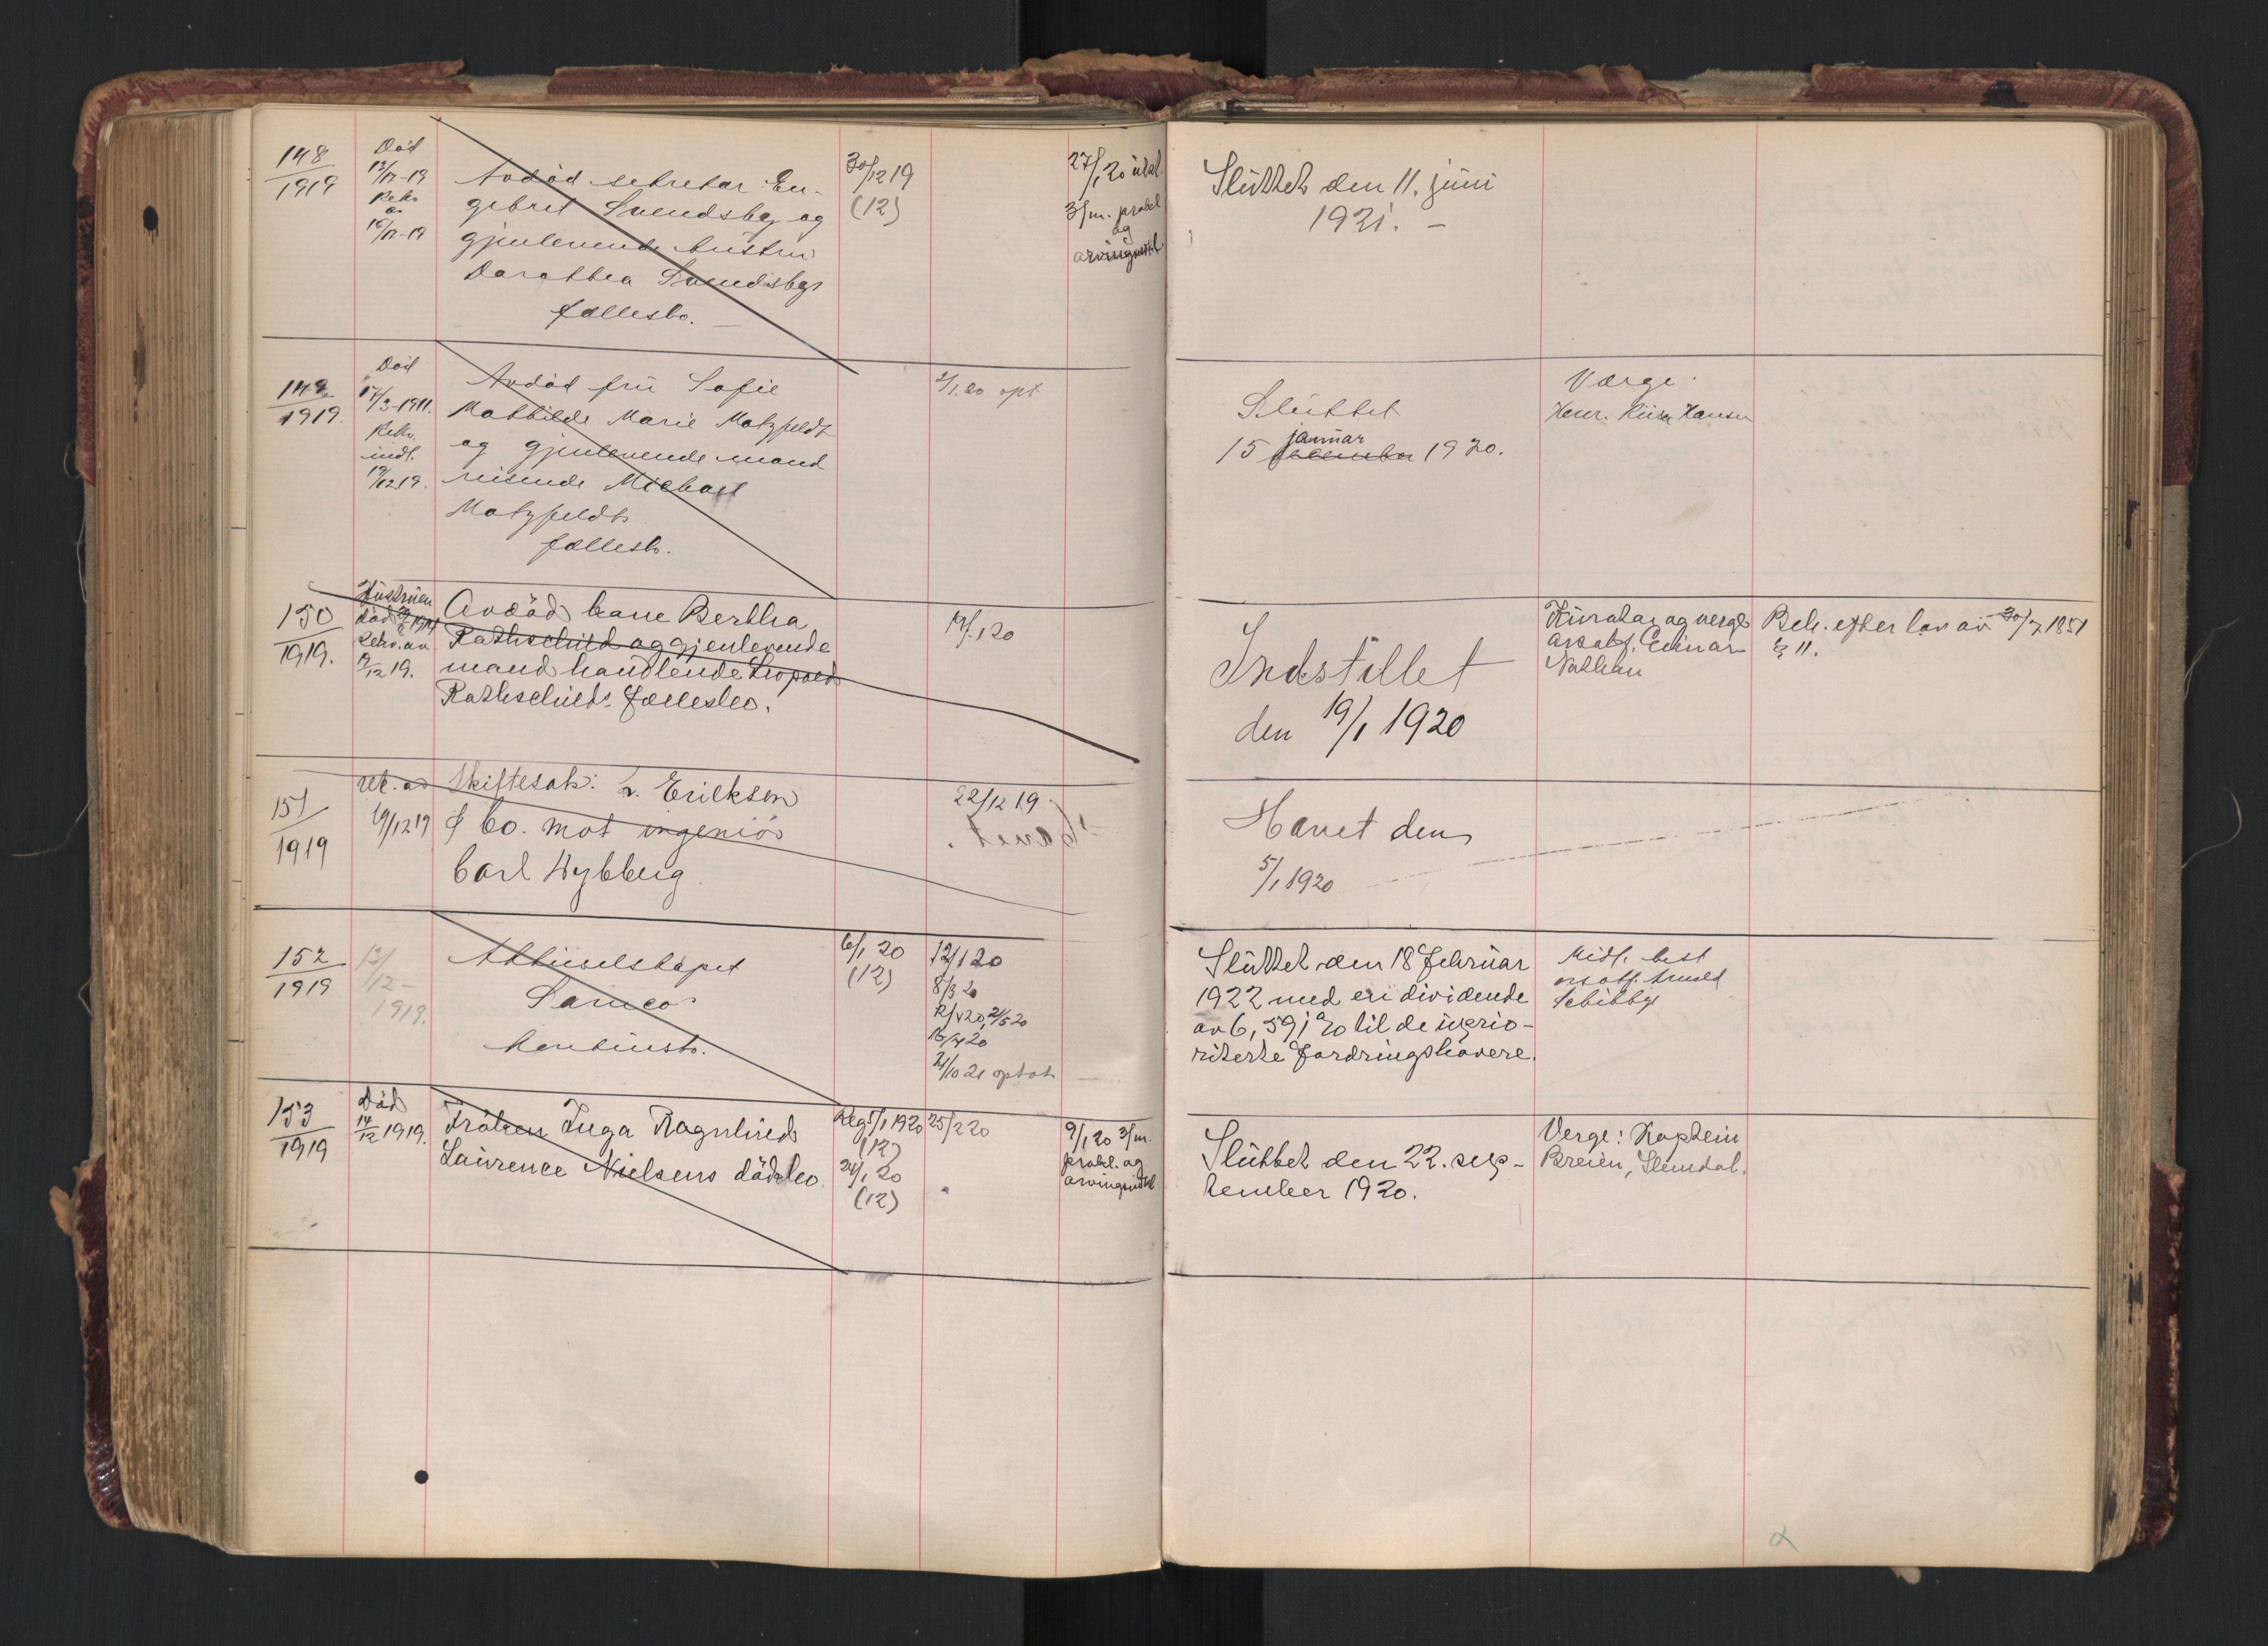 148
1919
Död
13/12-19
Rekv
av
16/12-19
Avdöd sekretær En-
gebret Svendsby og
gjenlevende hustru
Dorothea Svendsbys
fællesbo. —
30/12 19
(12)
27/1 20 utst.
3/m. prokl
og
arvingindk
Sluttet den 11. juni
1921. —
149
1919
Död
17/3-1911.
Rekv.
indl.
19/12 19.
Avdöd fru Sofie
Mathilde Marie Motzfeldt
og gjenlevende mand
reisende Michael
Motzfeldts
fællesbo.
2/1 20 opt
Sluttet
januar
15 december 1920.
Værge:
Henr. Hansen
150
1919.
Hustruen
död
Rekv. av
12 19.
Avdöd kone Bertha
Rathschild og gjenlevende
mand handlende Leopold
Rathschilds fællesbo.
19/1 20
Indstillet
den 19/1 1920
Kurator og verge
orsakf. Einar
Nathan
Beh. efter lov av 30/7 1851
§ 11.
151
1919
rek. av
19/12 19
Skiftesak: L. Ericksen
& Co. mot ingeniör
Carl Nybberg.
22/12 19.
Hævet den
5/1 1920
152
1919
13/
12-
1919.
Aktieselskapet
Sameos
konkursbo.
6/1 20
(12)
12/1 20
8/3 20
12/4 20, 21/5 20
16/7 20
21/10 21 optat
Sluttet den 18 februar
1922 med en dividende
av 6,591 % til de uprio-
riterte fordringshavere.
Midl. best
orsakf. Arnold
Schibbye
153
1919
Död
14/12 1919.
Fröken Inga Ragnhild
Laurence Nielsens dödsbo.
Reg 5/1 1920
(12)
24/1 20
(12)
25/2 20
9/1 20 3/m.
prokl. og
arvingindk
Sluttet den 22. sep-
tember 1920.
Verge: Kaptein
Breien, Slemdal.